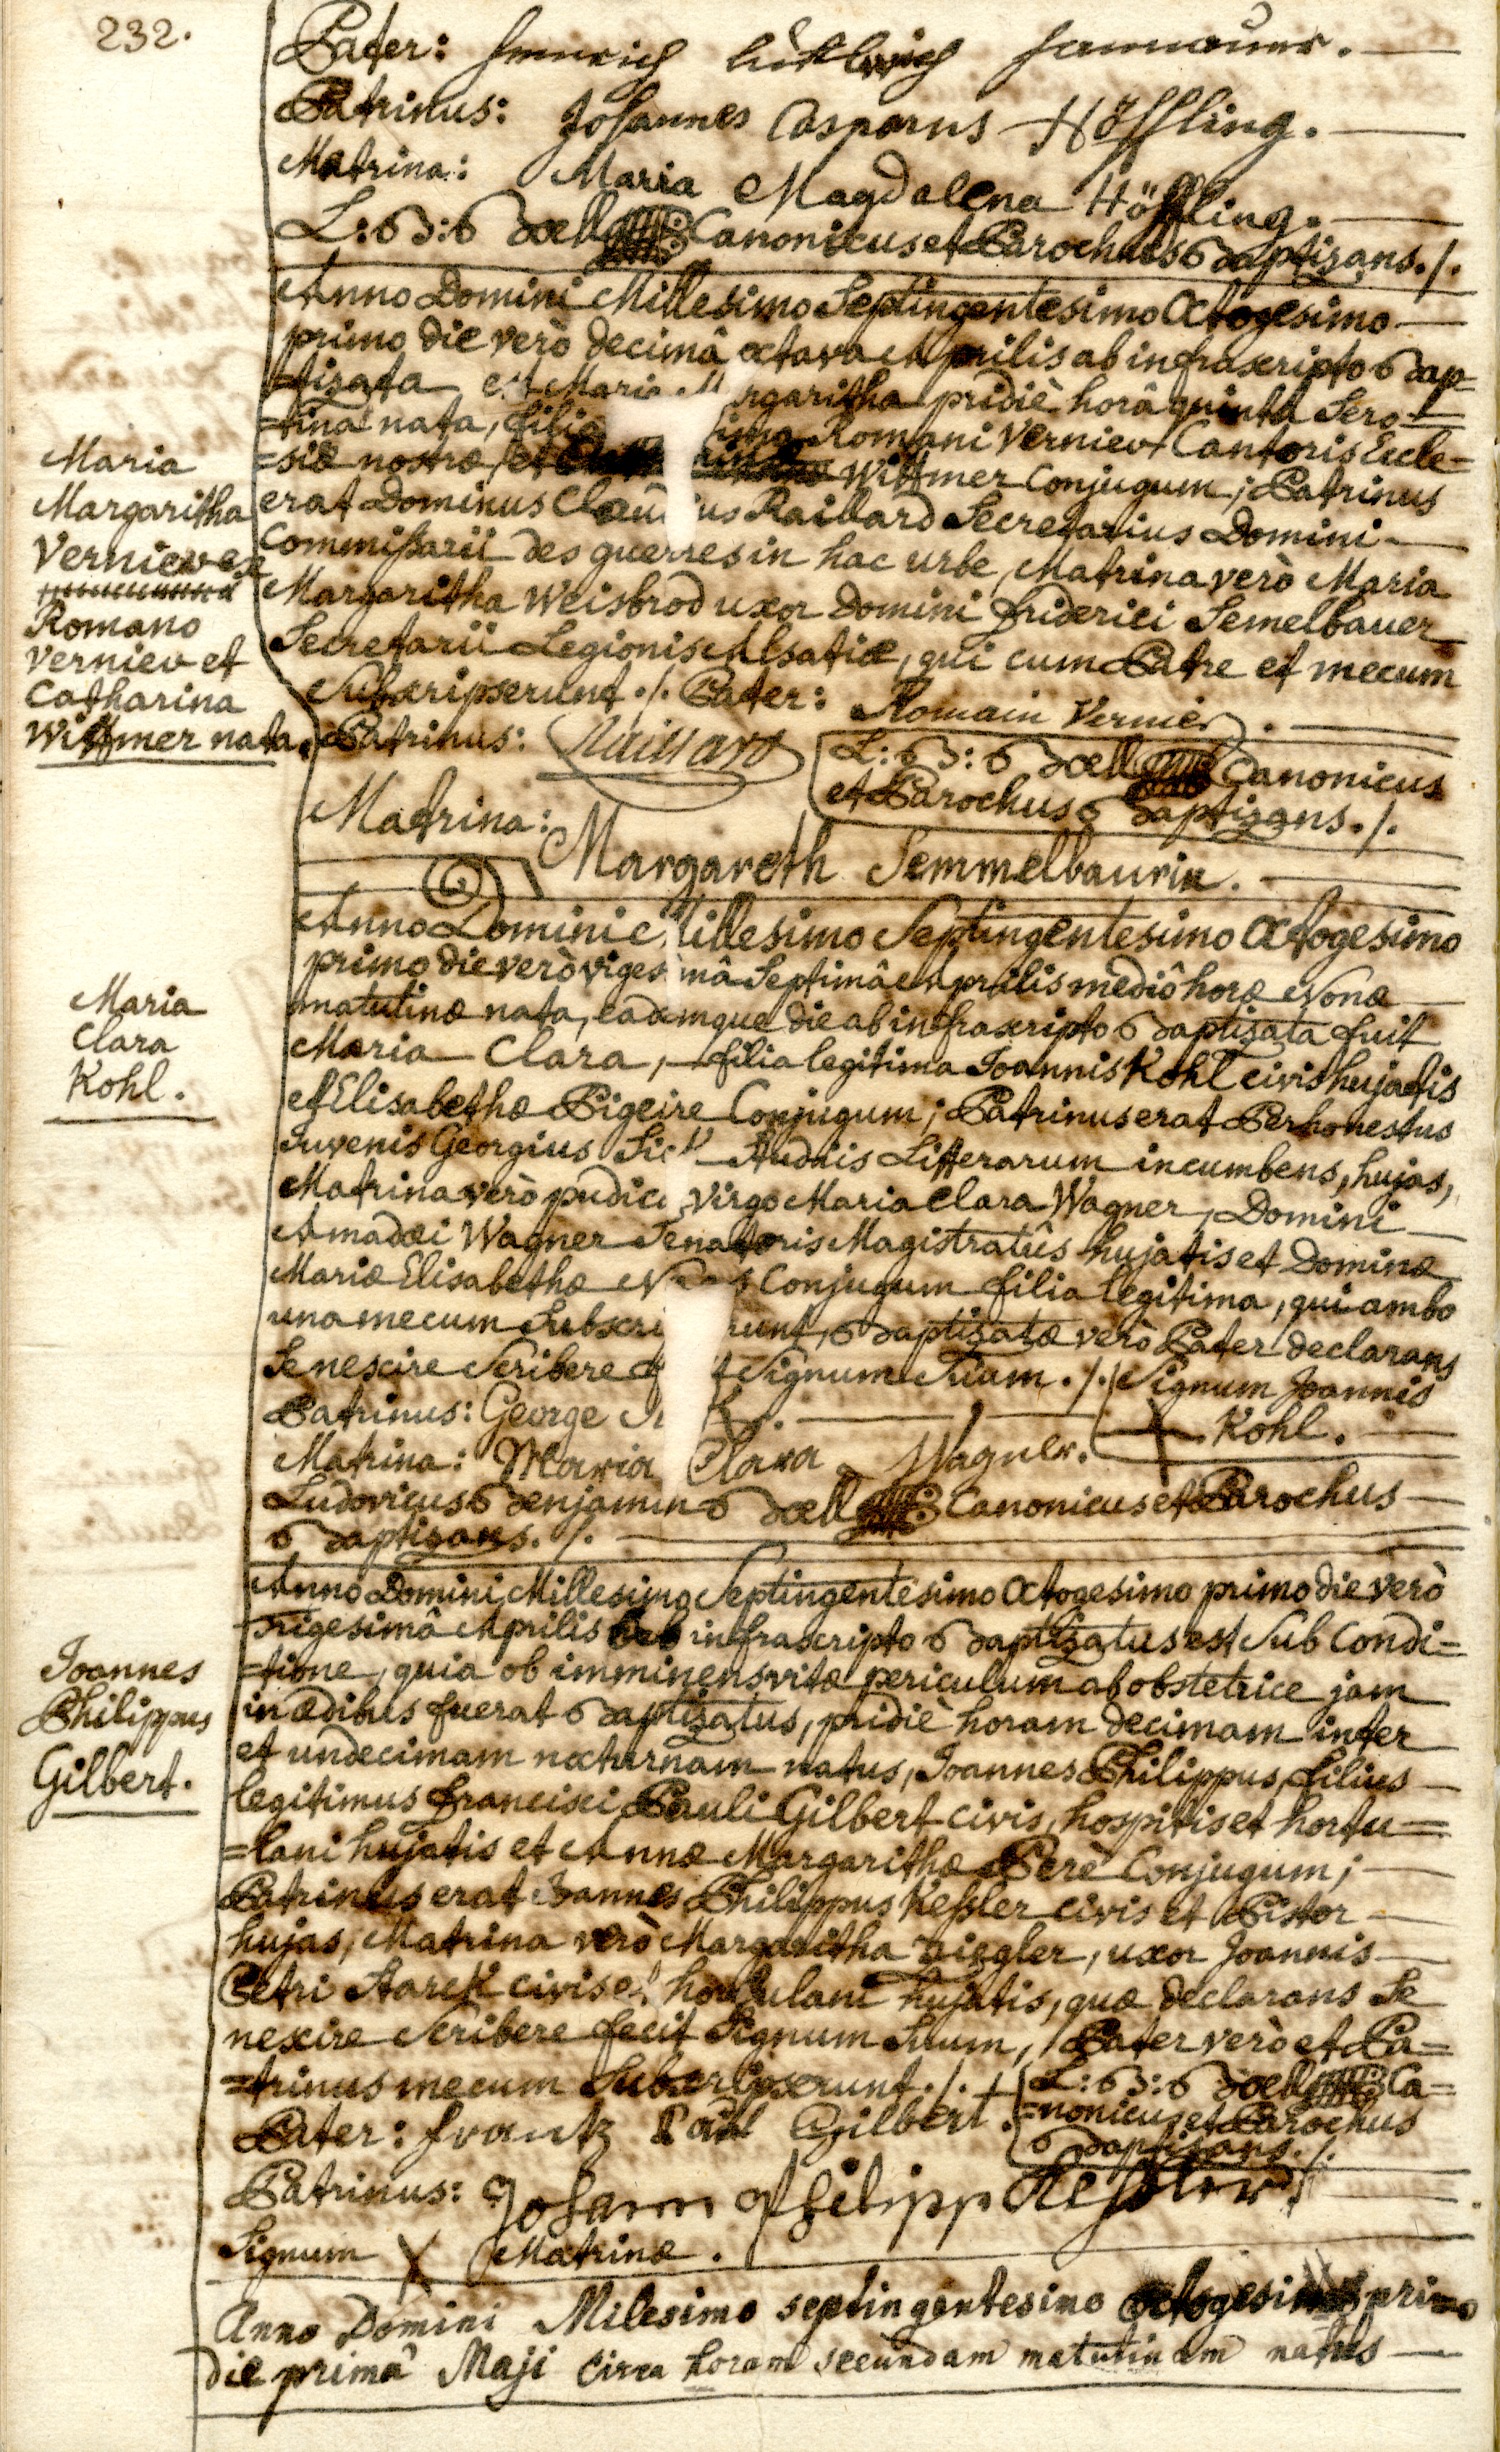 232.
Pater:
Patrinus: Johannes Casparus Höffling.
Matrina: Maria Magdalena Höffling.
L: B: Boell Canonicus et Parochus Baptizans ./.
Anno Domini Millesimo Septingentesimo Octogesimo
primo die verò decimâ octava Aprilis ab infrascripto Bap=
=tizata est Maria Margaritha pridiè horâ quintâ Sero=
=tinâ nata, filia Romani Vernier Cantoris Eccle=
=siæ nostræ, et Wittmer Conjugum; Patrinus
erat Dominus Claudius Raillard Secretarius Domini
Commissarii des guerres in hac urbe, Matrina verò Maria
Margaritha Weisbrod uxor Domini Friderici Semelbauer
Secretarii Legionis Alsatiæ, qui cum Patre et mecum
Subscripserunt ./. Pater: Romain Vernier.
Maria
Margaritha
Vernier ex
Romano
Vernier et
Catharina
Wittmer nata.
Patrinus: Raillard
L: B: Boell Canonicus
et Parochus Baptizans ./.
Matrina: Margareth Semmelbaurin.
Anno Domini Millesimo Septingentesimo Octogesimo
primo die verò vigesimâ Septimâ Aprilis mediô horæ Nonæ
matutinæ nata, eademque die ab infrascripto Baptizata fuit
Maria Clara, filia legitima Joannis Kohl civis hujatis
et Elisabethæ Pigeire Conjugum; Patrinus erat Perhonestus
Juvenis Georgius Sick Studiis Litterarum incumbens, hujas,
Matrina verò pudica Virgo Maria Clara Wagner, Domini
Amadæi Wagner Senatoris Magistratûs hujatis et Dominæ
Mariæ Elisabethæ Conjugum filia legitima, qui ambo
una mecum Subscripserunt, Baptizatæ verò Pater declarans
Se nescire Scribere Signum Suum ./. Signum Joannis
Kohl.
Maria
Clara
Kohl.
Patrinus: George
Matrina: Maria Clara Wagner.
Ludovicus Benjamin Boell Canonicus et Parochus
Baptizans ./.
Anno Domini Millesimo Septingentesimo Octogesimo primo die verò
Trigesimâ Aprilis ab infrascripto Baptizatus est Sub Condi=
=tione, quia ob imminens vitæ periculum ab obstetrice jam
in ædibus fuerat Baptizatus, pridiè horam decimam inter
et undecimam nocturnam natus, Joannes Philippus, filius
legitimus Francisci Pauli Gilbert civis, hospitis et hortu=
=lani hujatis et Annæ Margarithæ Perè Conjugum;
Patrinus erat Joannes Philippus Kessler civis et Pistor
hujas, Matrina verò Margaritha Ziegler, uxor Joannis
Petri Starck civis et hortulani hujatis, quæ declarans Se
nescire Scribere fecit Signum Suum, Pater verò et Pa=
=trinus mecum Subscripserunt ./.
Joannes
Philippus
Gilbert.
L: B: Boell Ca=
=nonicus et Parochus
Baptizans ./.
Pater: Frantz Paul Gilbert.
Patrinus: Johann Philipp Kessler
Signum X Matrinæ.
Anno Domini Milesimo septingentesimo octogesimo primo
die primâ Maji circa horam secundam matutinam natus